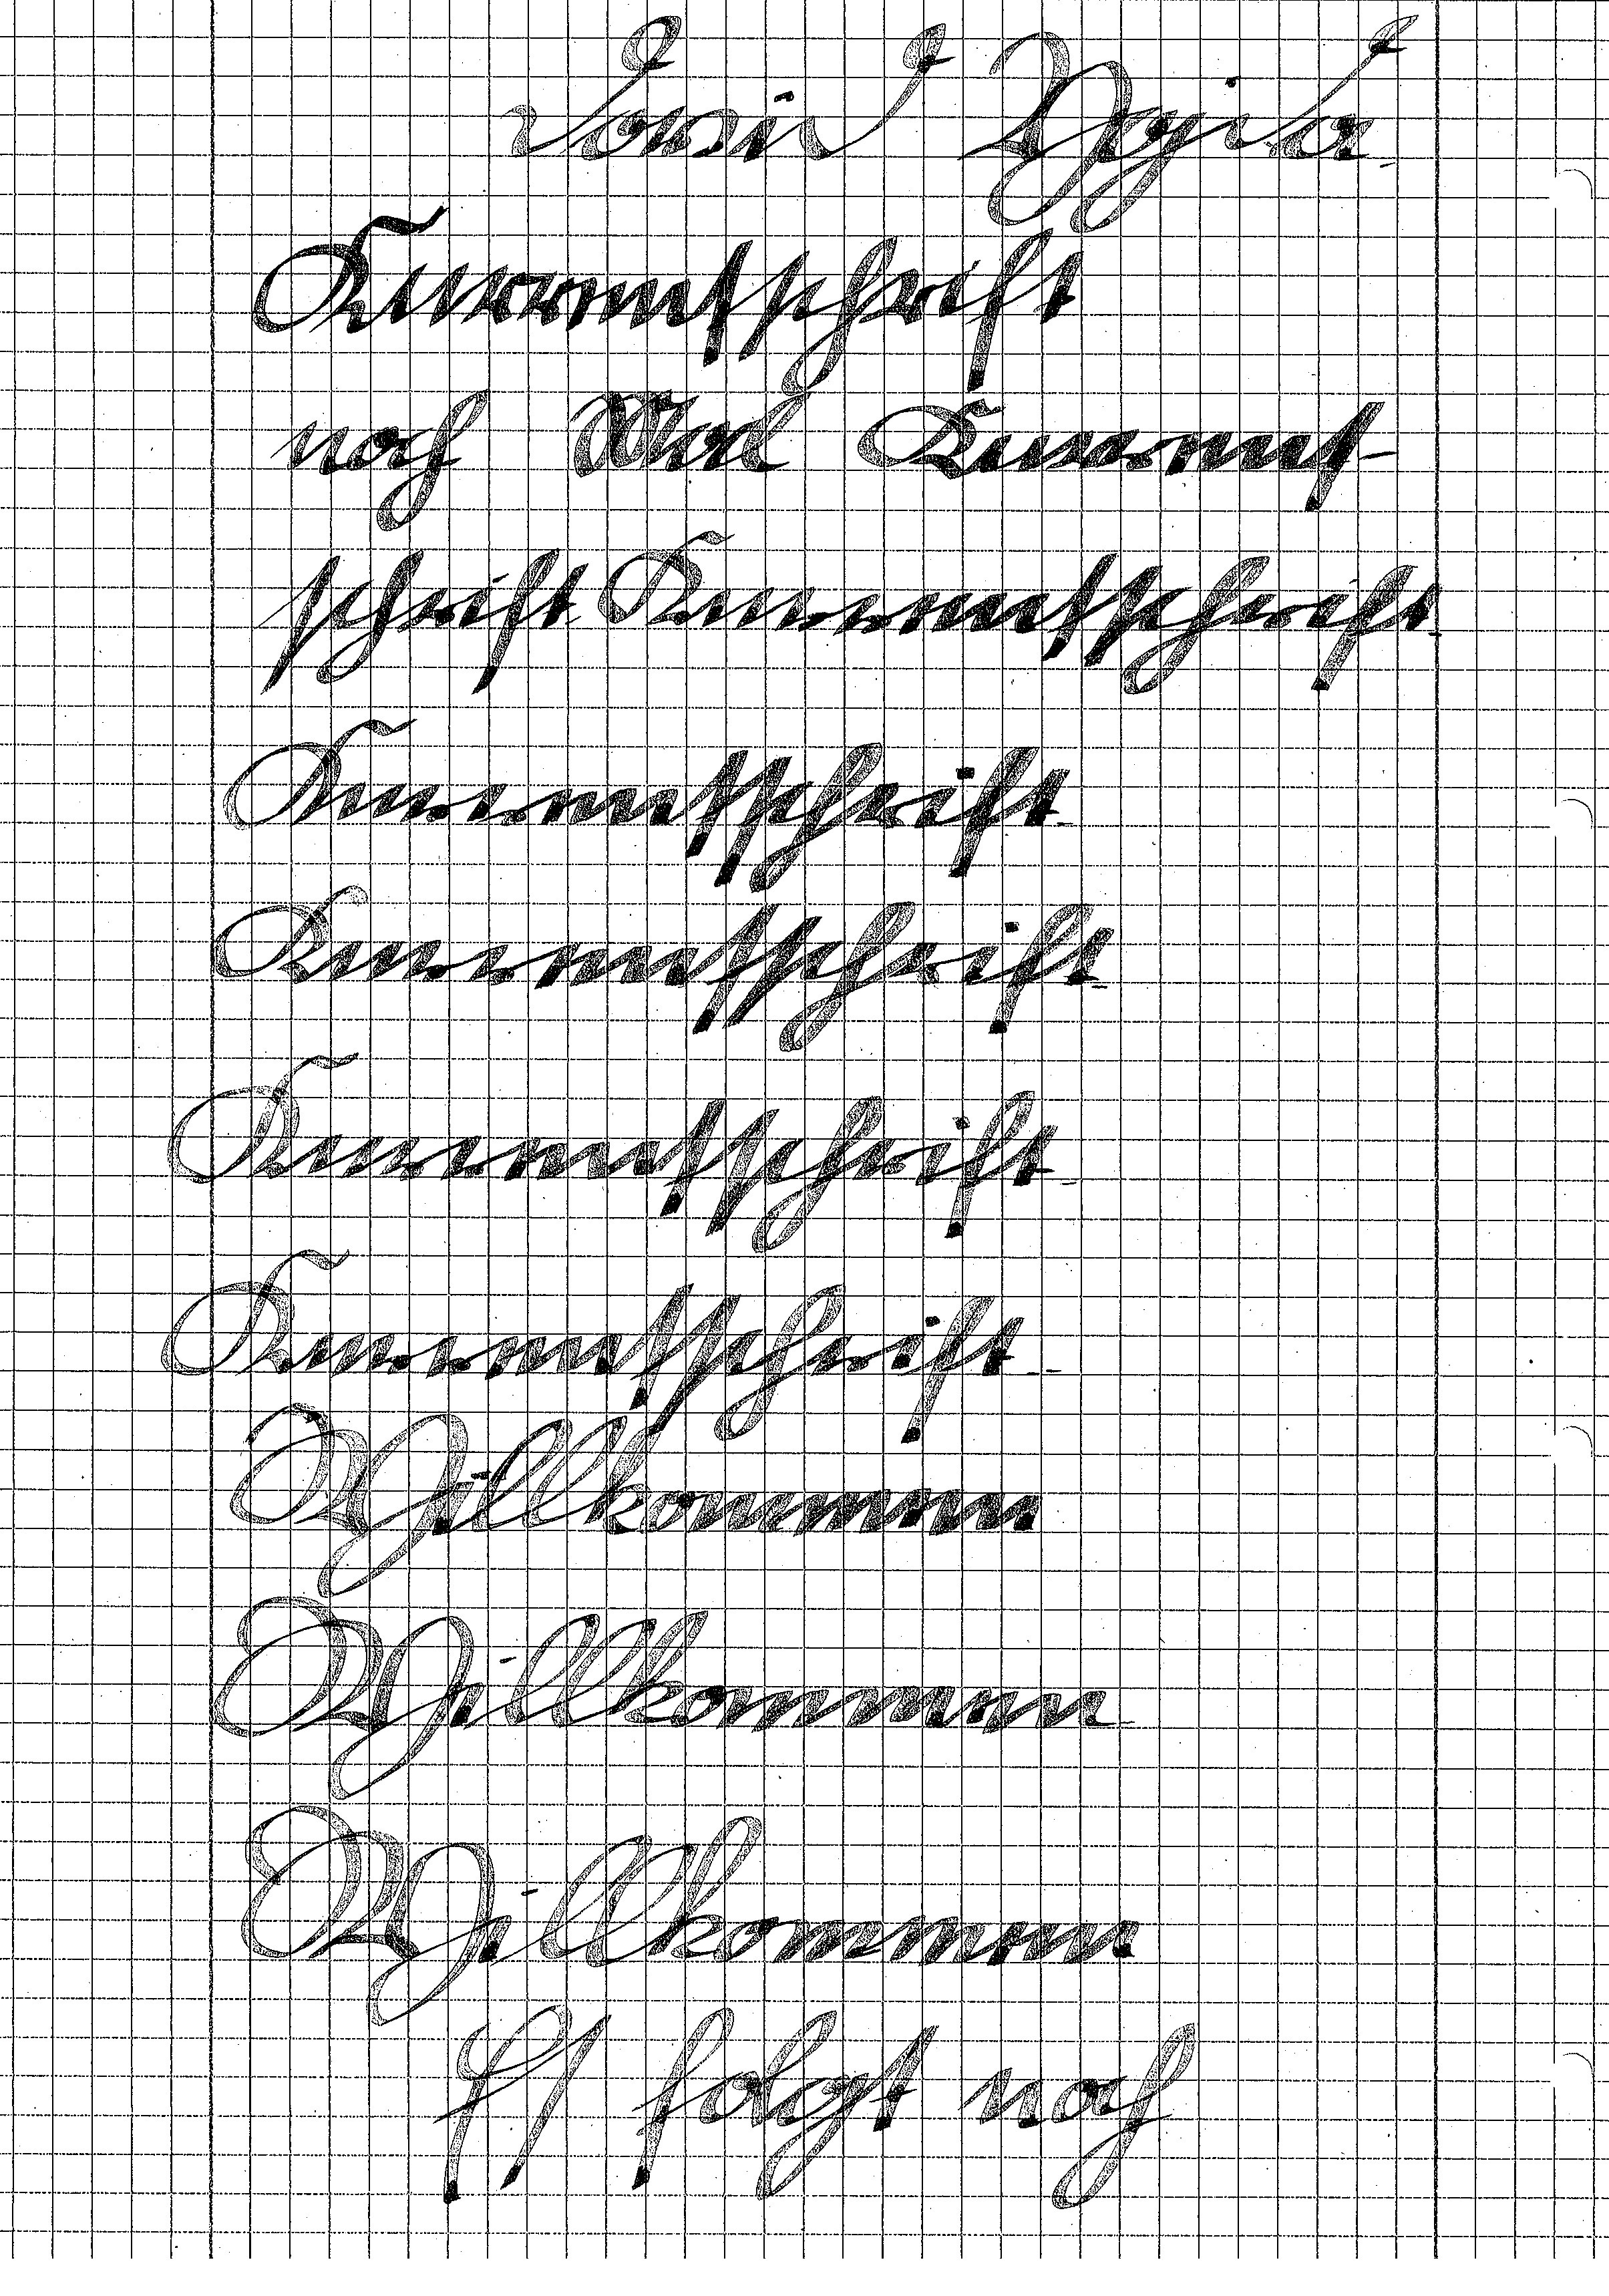 Kurrentschrift
noch Kurrent-
schrift Kurrentschrift
Kurrentschrift
Kurrentschrift
Kurrentschrift
Kurrentschrift
Willkommen
Willkommen
Willkommen
Es folgt noch